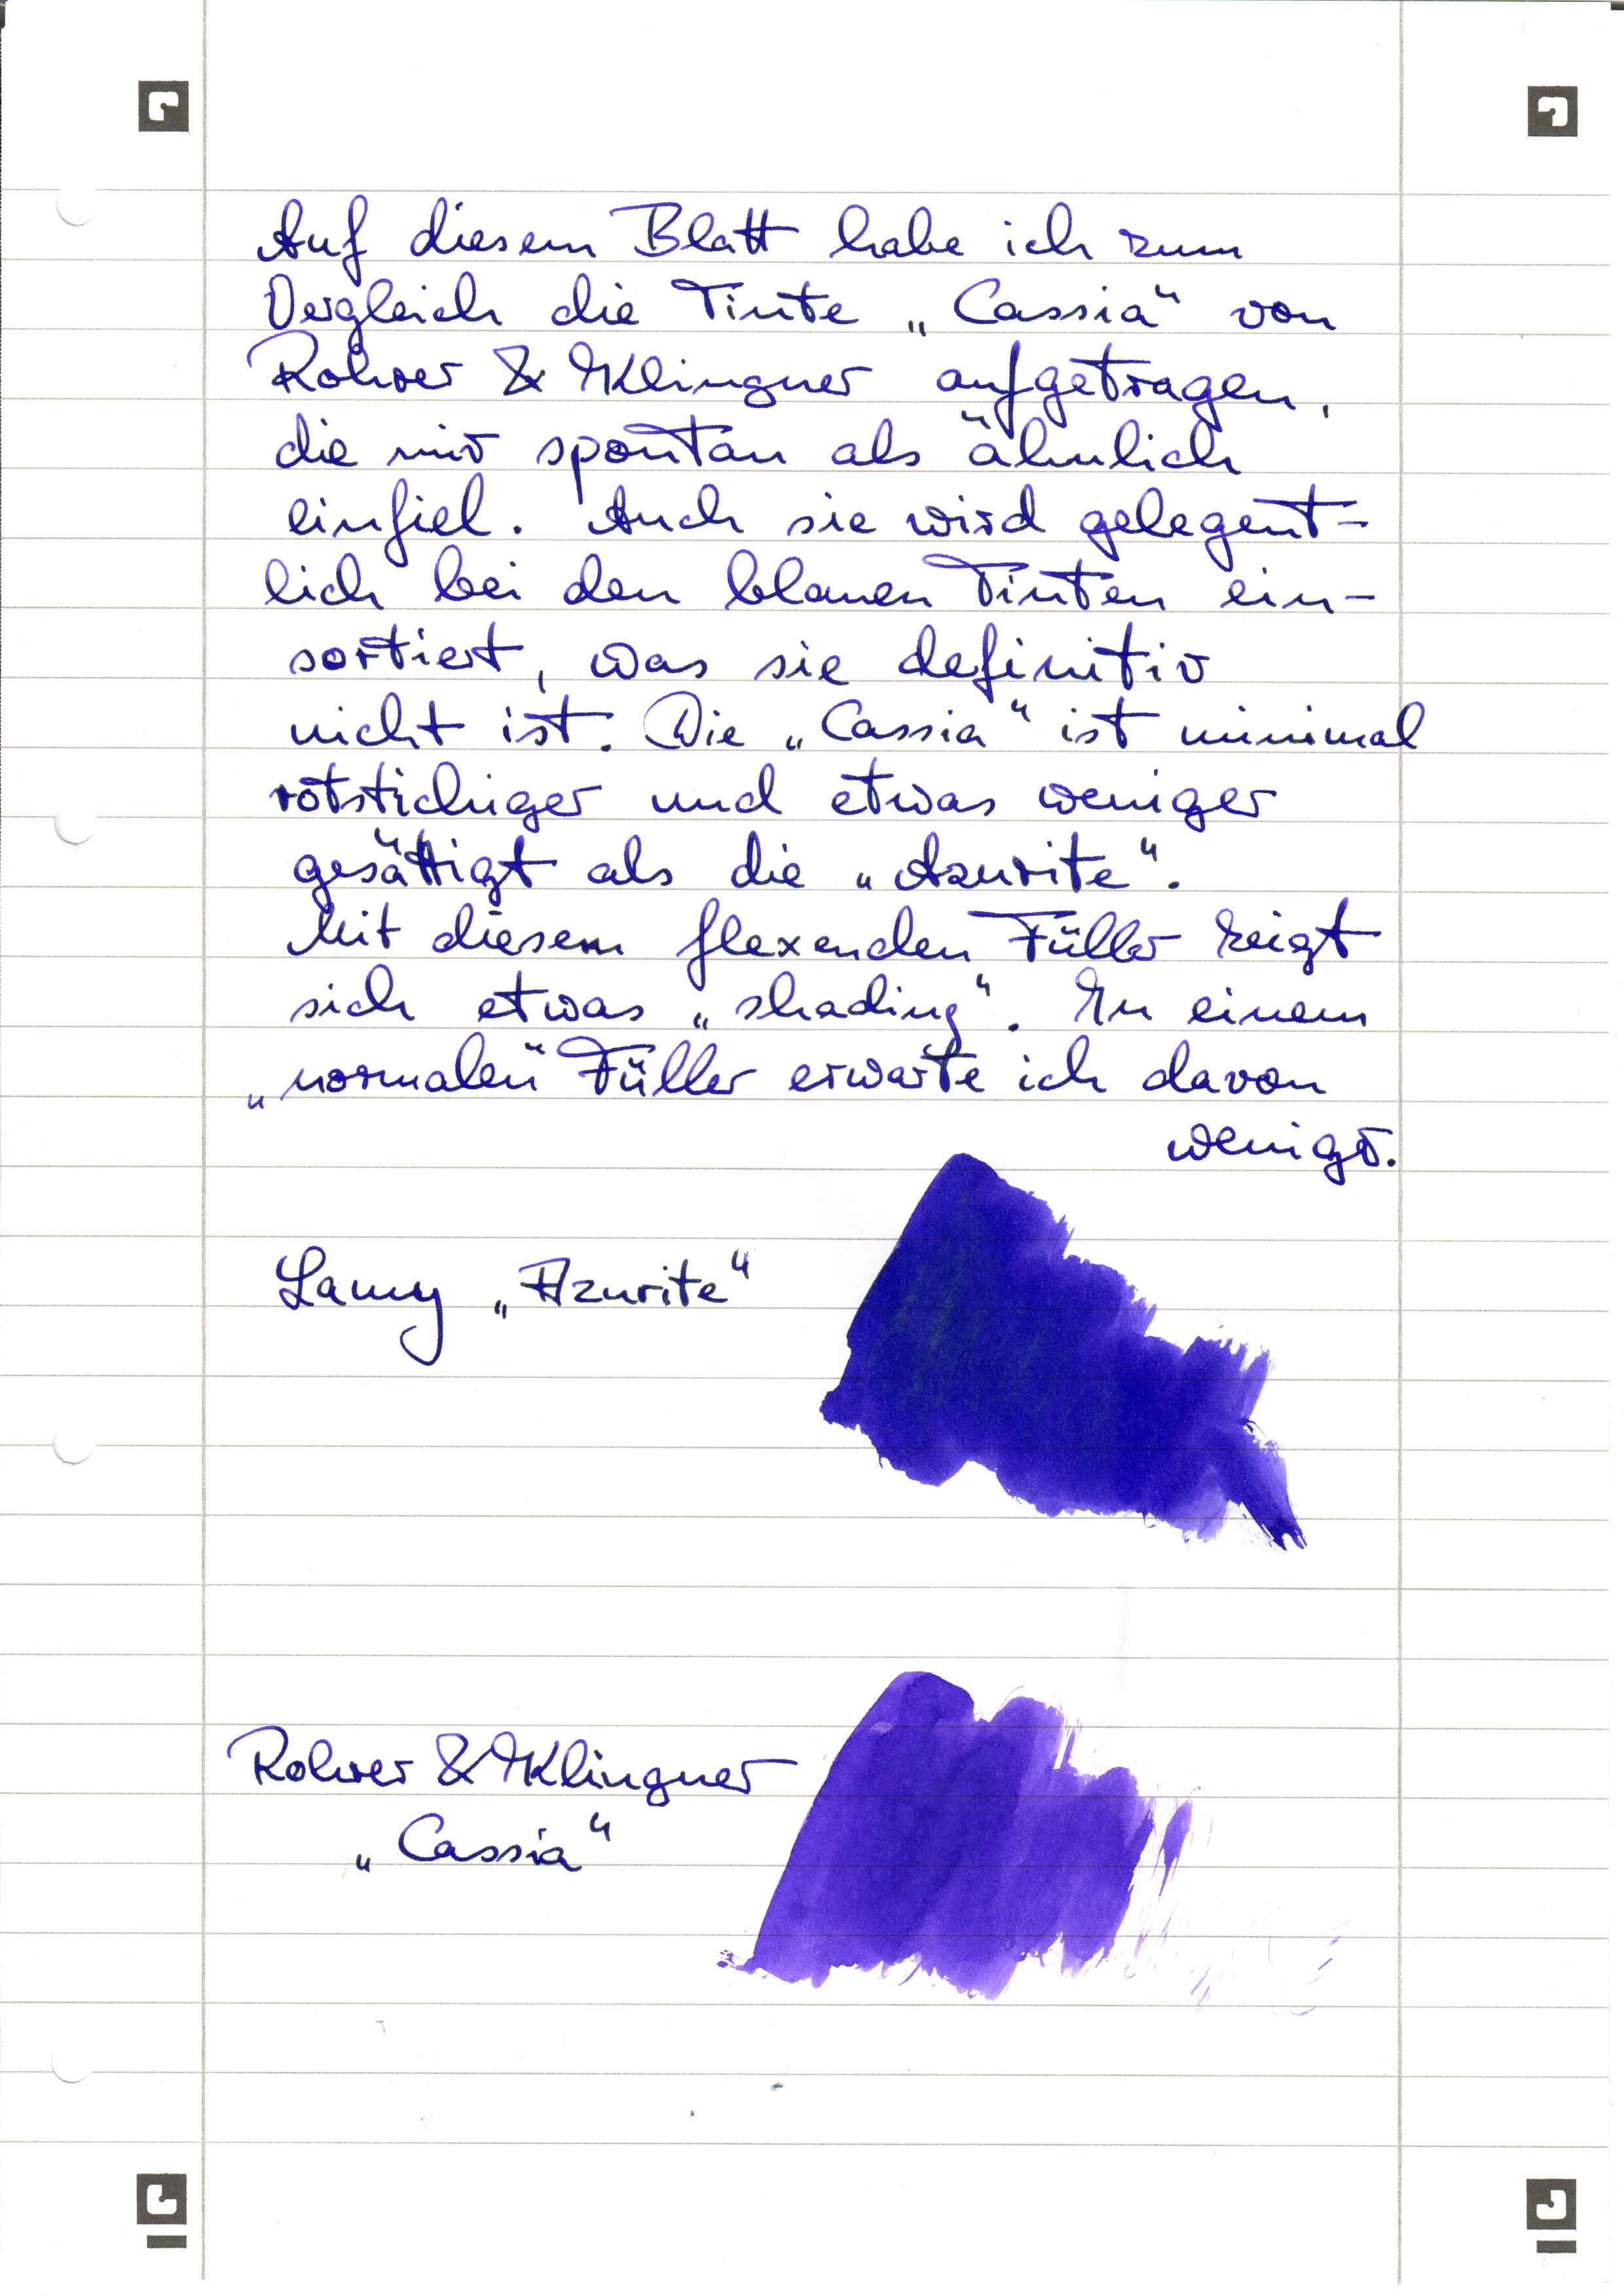 Auf diesem Blatt habe ich zum
Vergleich die Tinte „Cassia“ von
Rohrer & Klingner aufgetragen,
die mir spontan als ähnlich
einfiel. Auch sie wird gelegent-
lich bei den blauen Tinten ein-
sortiert, was sie definitiv
nicht ist. Die „Cassia“ ist minimal
rotstichiger und etwas weniger
gesättigt als die „Azurite“.
Mit diesem flexenden Füller zeigt
sich etwas „shading“. In einem
„normalen“ Füller erwarte ich davon
weniger.
Lamy „Azurite“
Rohrer & Klingner
„Cassia“